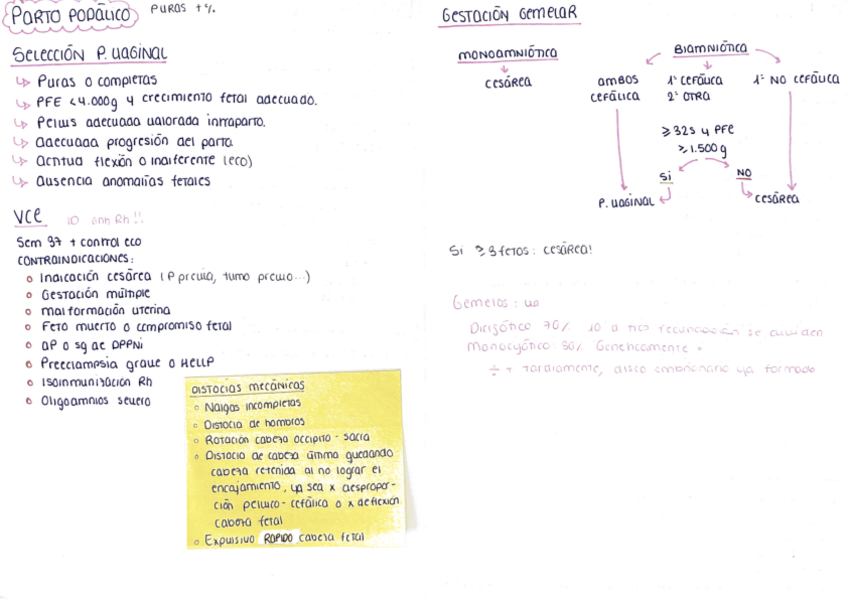 PARTO PODÁLICO
PURAS +%
SELECCIÓN P. VAGINAL
↳ Puras o completas
↳ PFE <4.000g y crecimiento fetal adecuado.
↳ Pelvis adecuada valorada intraparto.
↳ Adecuada progresión del parto
↳ Actitud flexión o indiferente (eco)
↳ Ausencia anomalías fetales
VCE
Sem 37 + control eco
CONTRAINDICACIONES:
Indicación cesárea (P previa, tumo previo...)
Gestación múltiple
Malformación uterina
Feto muerto o compromiso fetal
AP o sg de DPPNI
Preeclampsia grave o HELLP
Isoinmunización Rh
Oligoamnios severo
DISTOCIAS MECÁNICAS
Nalgas incompletas
Distocia de hombros
Rotación cabeza occipito - sacra
Distocia de cabeza última quedando
cabeza retenida al no lograr el
encajamiento, ya sea x despropor-
ción pelvico - cefálica o x deflexión
cabeza fetal
Expulsivo RÁPIDO cabeza fetal
GESTACIÓN GEMELAR
MONOAMNIÓTICA
CESÁREA
BIAMNIÓTICA
AMBOS
CEFÁLICA
1º CEFÁLICA
2º OTRA
1º NO CEFÁLICA
≥32S y PFE
≥1.500g
SI
NO
P. VAGINAL
CESÁREA
Si ≥3 fetos: CESÁREA!
Gemelos:
Dicigótico 70%
Monocigótico 30% Genéticamente =
÷ + tardiamente, disco embrionario ya formado